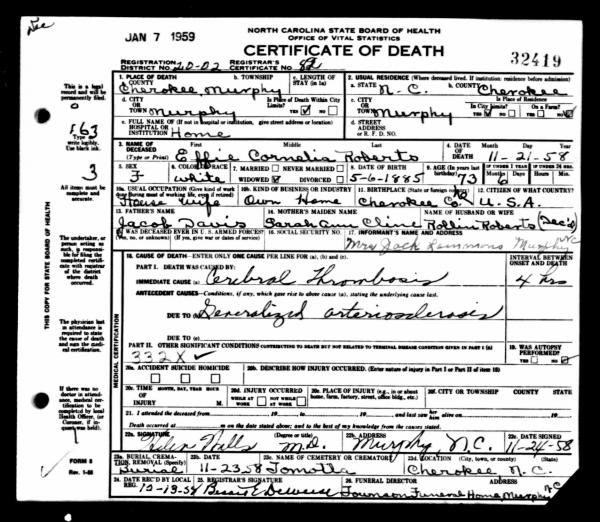 Dec
JAN 7 1959
NORTH CAROLINA STATE BOARD OF HEALTH
OFFICE OF VITAL STATISTICS
CERTIFICATE OF DEATH
32419
REGISTRATION DISTRICT NO. 20-02 REGISTRAR'S CERTIFICATE NO. 82
This is a legal record and will be permanently filed.
Type or write legibly. Use black ink.
All items must be complete and accurate.
The undertaker, or person acting as such, is responsible for filing the completed certificate with registrar of the district where death occurred.
The physician last in attendance is required to state the cause of death and sign the medical certification.
If there was no doctor in attendance, medical certification to be completed by local Health Officer, (or Coroner, if inquest was held).
FORM 8
THIS COPY FOR STATE BOARD OF HEALTH
MEDICAL CERTIFICATION
1. PLACE OF DEATH
a. COUNTY Cherokee, b. TOWNSHIP Murphy c. LENGTH OF STAY (in 1a)
2. USUAL RESIDENCE (Where deceased lived. If institution: residence before admission)
a. STATE N. C. b. COUNTY Cherokee
d. CITY OR TOWN Murphy Is Place of Death Within City Limits? YES NO
c. CITY OR TOWN Murphy Is Place of Residence In City Limits? YES NO On a Farm? YES NO
e. FULL NAME OF (If not in hospital or institution, give street address or location) HOSPITAL OR INSTITUTION Home
d. STREET ADDRESS OR R. F. D. NO.
3. NAME OF DECEASED (Type or Print) First Middle Last
Effie Cornelia Roberts
4. DATE OF DEATH Month Day Year 11-21-58
5. SEX F 6. COLOR OR RACE White 7. MARRIED NEVER MARRIED WIDOWED DIVORCED
8. DATE OF BIRTH 5-6-1885 9. AGE (In years last birthday) 73 IF UNDER 1 YEAR Months 6 Days IF UNDER 24 HRS. Hours Min.
10a. USUAL OCCUPATION (Give kind of work done during most of working life, even if retired) House Wife
10b. KIND OF BUSINESS OR INDUSTRY Own Home
11. BIRTHPLACE (State or foreign country) Cherokee Co.
12. CITIZEN OF WHAT COUNTRY? U. S. A.
13. FATHER'S NAME Jacob Davis
14. MOTHER'S MAIDEN NAME Sarah Ann Cline
NAME OF HUSBAND OR WIFE Rollin Roberts (Dec'd)
15. WAS DECEASED EVER IN U. S. ARMED FORCES? (Yes, no, or unknown) (If yes, give war or dates of service)
16. SOCIAL SECURITY NO.
17. INFORMANT'S NAME AND ADDRESS Mrs Jack Lemmons Murphy NC
18. CAUSE OF DEATH—ENTER ONLY ONE CAUSE PER LINE FOR (a), (b), and (c).
INTERVAL BETWEEN ONSET AND DEATH
PART I. DEATH WAS CAUSED BY:
IMMEDIATE CAUSE (a) Cerebral Thrombosis 4 hrs
ANTECEDENT CAUSES—Conditions, if any, which gave rise to above cause (a), stating the underlying cause last.
DUE TO (b) Generalized arteriosclerosis
DUE TO (c)
PART II. OTHER SIGNIFICANT CONDITIONS CONTRIBUTING TO DEATH BUT NOT RELATED TO TERMINAL DISEASE CONDITION GIVEN IN PART I (a)
332X
19. WAS AUTOPSY PERFORMED? YES NO
20a. ACCIDENT SUICIDE HOMICIDE
20b. DESCRIBE HOW INJURY OCCURRED. (Enter nature of injury in Part I or Part II of item 18)
20c. TIME OF INJURY MONTH, DAY, YEAR HOUR M.
20d. INJURY OCCURRED WHILE AT WORK NOT WHILE AT WORK
20e. PLACE OF INJURY (e.g., in or about home, farm, factory, street, office bldg., etc.)
20f. CITY OR TOWNSHIP COUNTY STATE
21. I attended the deceased from 19 to 19 and last saw her/him alive on 19
Death occurred at m on the date stated above; and to the best of my knowledge from the causes stated.
22a. SIGNATURE Helen Wells (Degree or title) M.D.
22b. ADDRESS Murphy, N. C.
22c. DATE SIGNED 11-24-58
23a. BURIAL, CREMATION, REMOVAL (Specify) Burial
23b. DATE 11-23-58
23c. NAME OF CEMETERY OR CREMATORY Tomotla
23d. LOCATION (City, town, or county) (State) Cherokee N. C.
24. DATE REC'D BY LOCAL REG. 12-19-58
25. REGISTRAR'S SIGNATURE
26. FUNERAL DIRECTOR Townson Funeral Home, Murphy N.C.